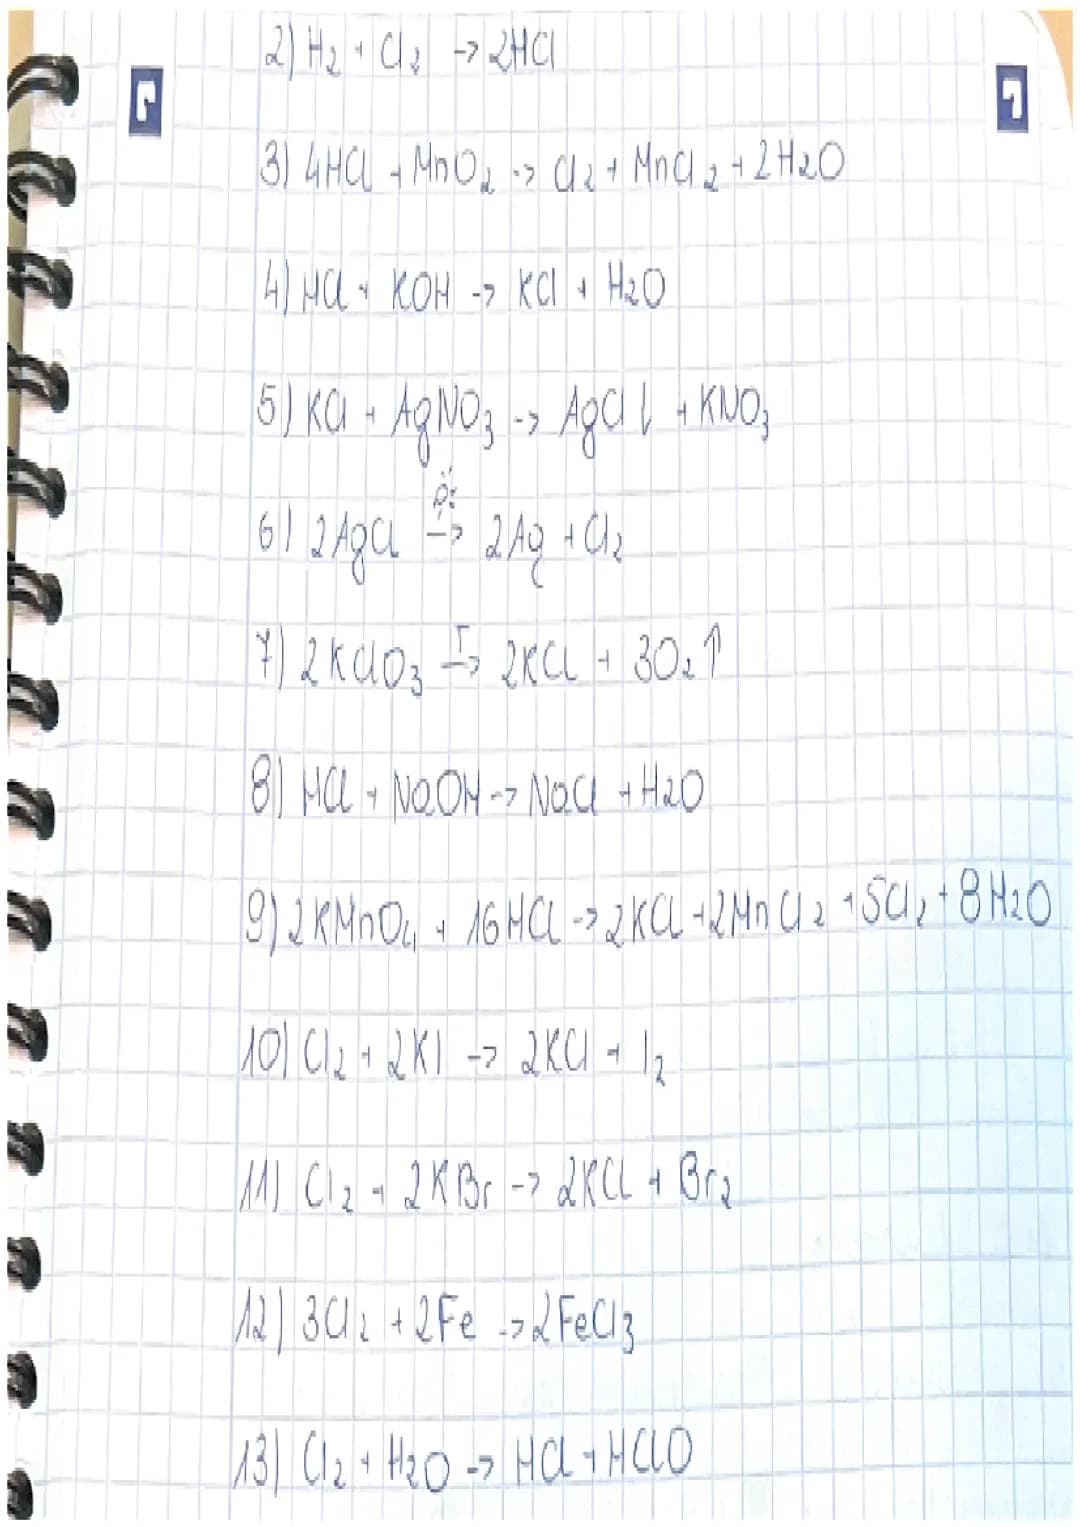 2) H₂ + Cl₂ -> 2HCl
3) 4HCl + MnO₂ -> Cl₂ + MnCl₂ + 2H₂O
4) HCl + KOH -> KCl + H₂O
5) KCl + AgNO₃ -> AgCl↓ + KNO₃
6) 2AgCl -> 2Ag + Cl₂
7) 2KClO₃ -T-> 2KCl + 3O₂↑
8) HCl + NaOH -> NaCl + H₂O
9) 2KMnO₄ + 16HCl -> 2KCl + 2MnCl₂ + 5Cl₂ + 8H₂O
10) Cl₂ + 2KI -> 2KCl + I₂
11) Cl₂ + 2KBr -> 2KCl + Br₂
12) 3Cl₂ + 2Fe -> 2FeCl₃
13) Cl₂ + H₂O -> HCl + HClO